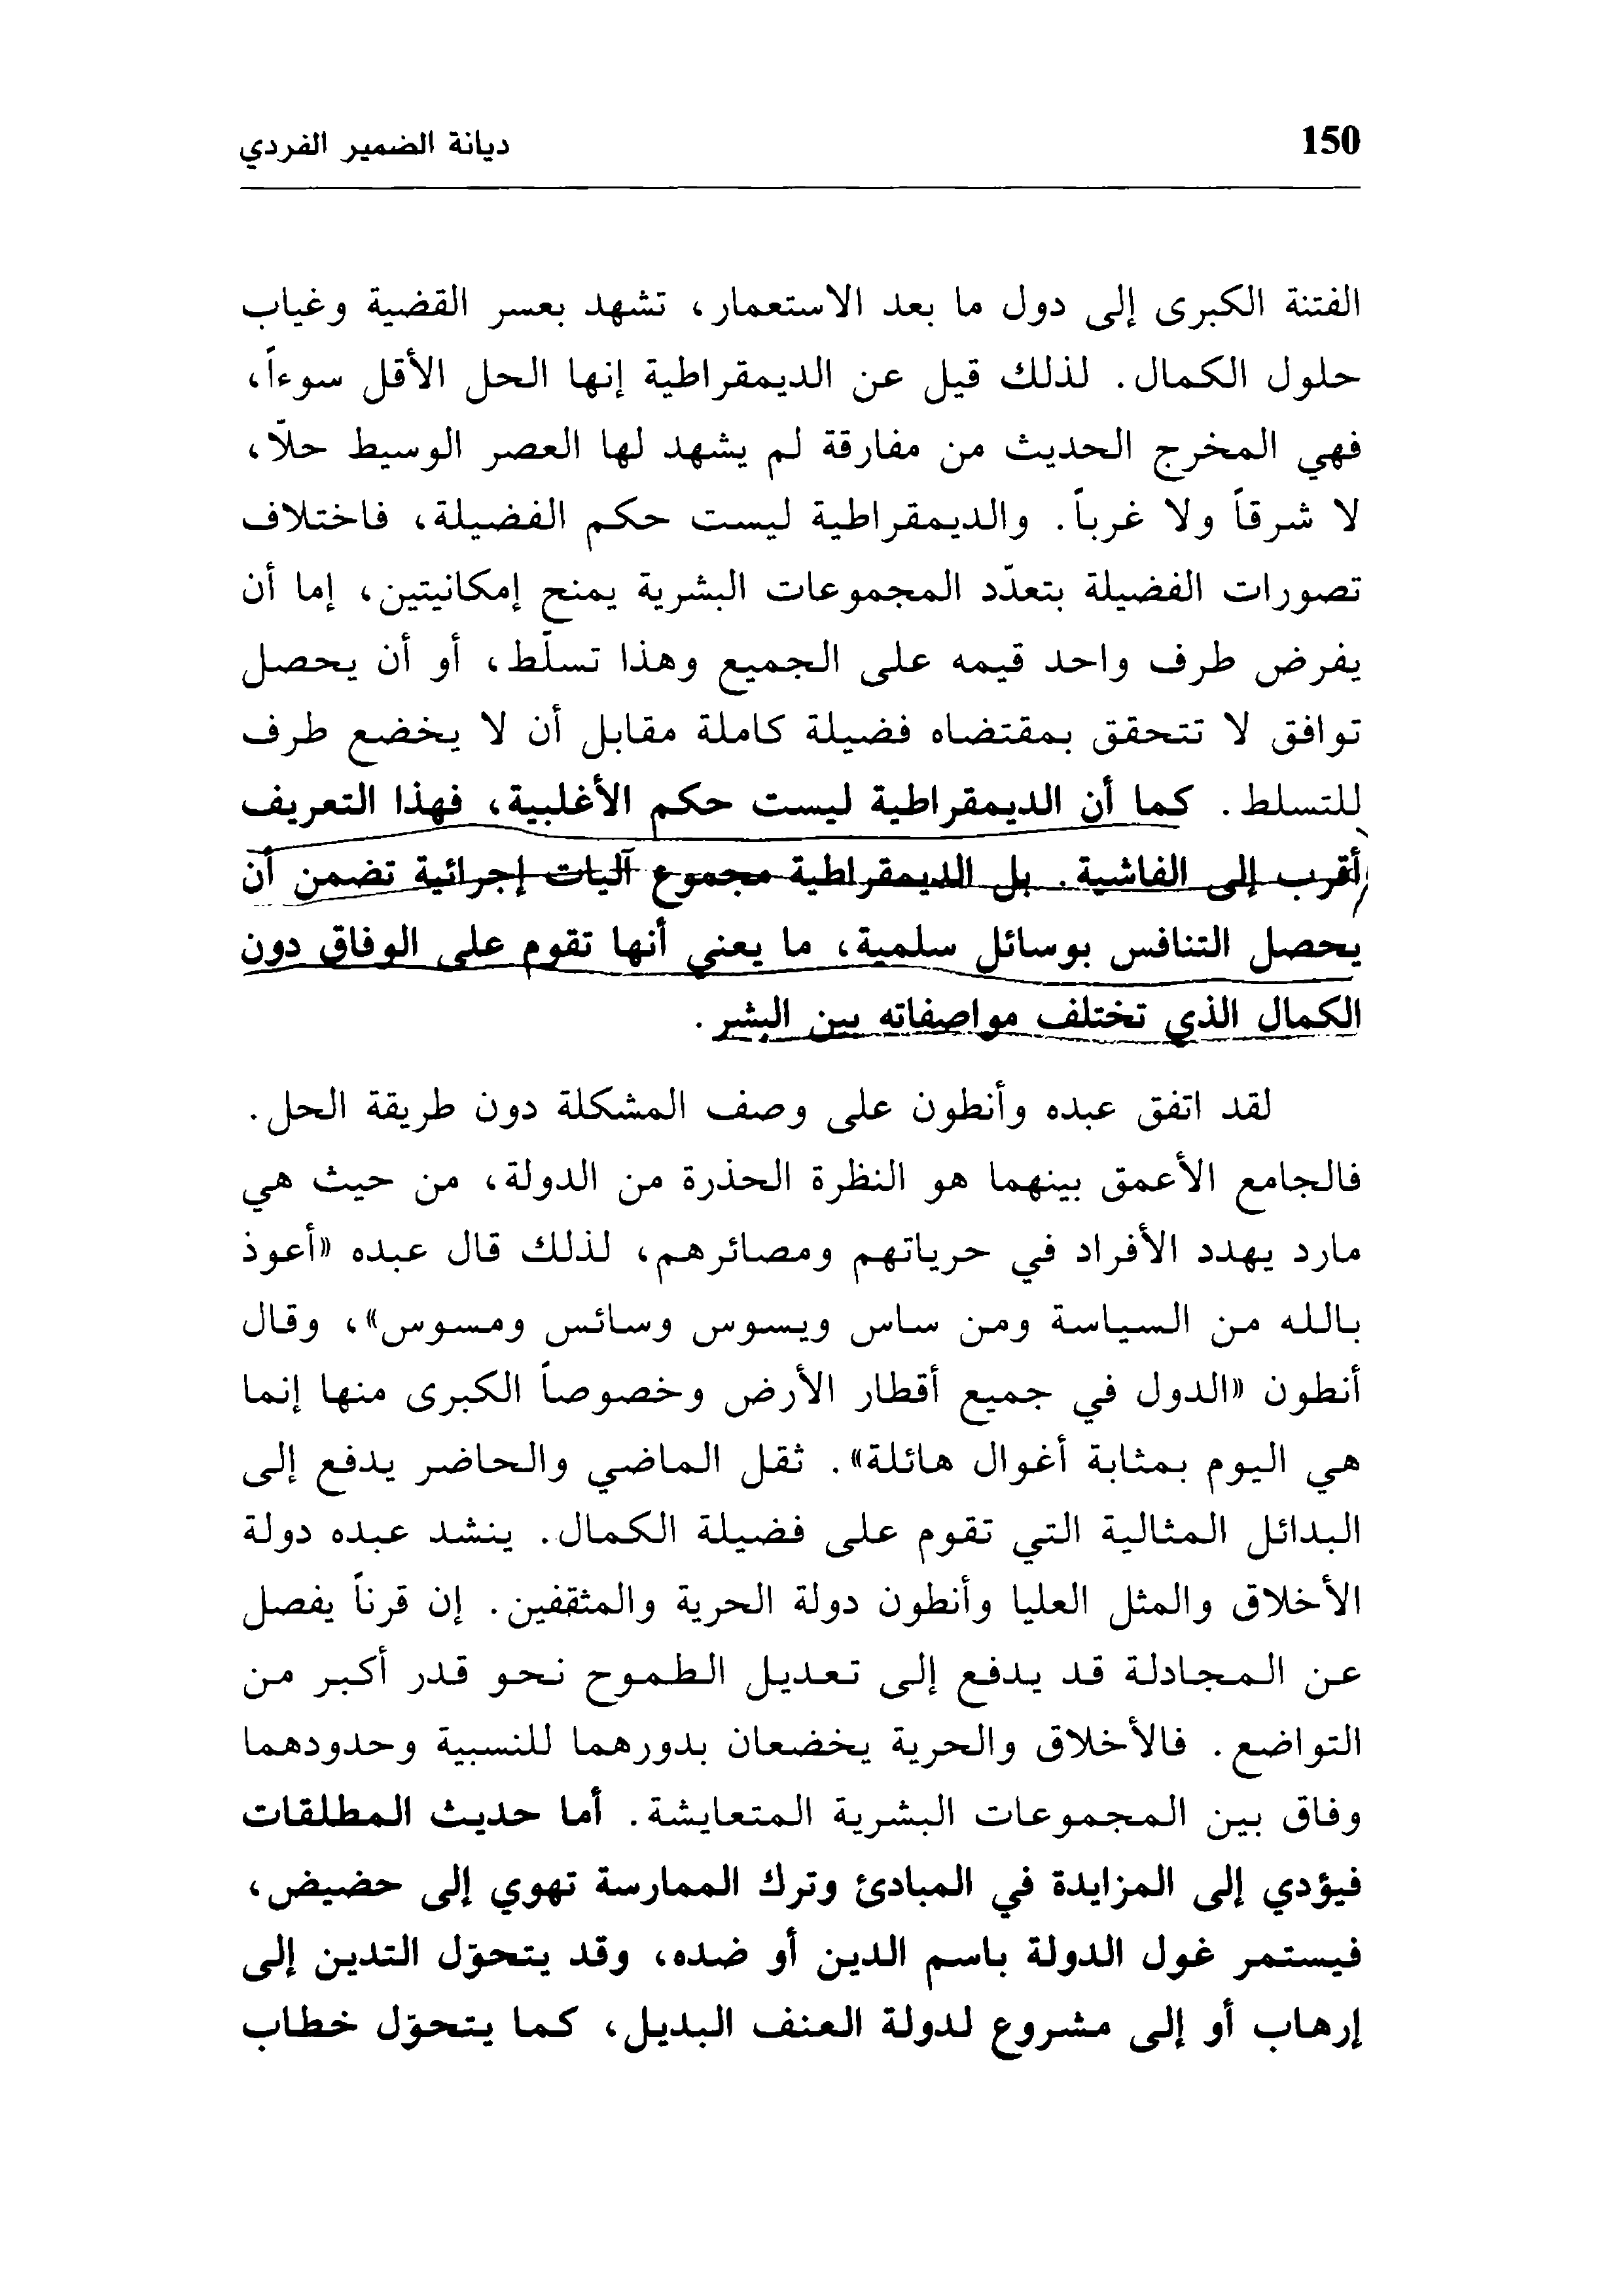 150
ديانة الضمير الفردي
الفتنة الكبرى إلى دول ما بعد الاستعمار، تشهد بعسر القضية وغياب
حلول الكمال. لذلك قيل عن الديمقراطية إنها الحل الأقل سوءاً،
فهي المخرج الحديث من مفارقة لم يشهد لها العصر الوسيط حلاّ،
لا شرقاً ولا غرباً. والديمقراطية ليست حكم الفضيلة، فاختلاف
تصورات الفضيلة بتعدّد المجموعات البشرية يمنح إمكانيتين، إما أن
يفرض طرف واحد قيمه على الجميع وهذا تسلّط، أو أن يحصل
توافق لا تتحقق بمقتضاه فضيلة كاملة مقابل أن لا يخضع طرف
للتسلط. كما أن الديمقراطية ليست حكم الأغلبية، فهذا التعريف
أقرب إلى الفاشية. بل الديمقراطية مجموع آليات إجرائية تضمن أن
يحصل التنافس بوسائل سلمية، ما يعني أنها تقوم على الوفاق دون
الكمال الذي تختلف مواصفاته بين البشر.
لقد اتفق عبده وأنطون على وصف المشكلة دون طريقة الحل.
فالجامع الأعمق بينهما هو النظرة الحذرة من الدولة، من حيث هي
مارد يهدد الأفراد في حرياتهم ومصائرهم، لذلك قال عبده «أعوذ
بالله من السياسة ومن ساس ويسوس وسائس ومسوس»، وقال
أنطون «الدول في جميع أقطار الأرض وخصوصاً الكبرى منها إنما
هي اليوم بمثابة أغوال هائلة». ثقل الماضي والحاضر يدفع إلى
البدائل المثالية التي تقوم على فضيلة الكمال. ينشد عبده دولة
الأخلاق والمثل العليا وأنطون دولة الحرية والمثقفين. إن قرناً يفصل
عن المجادلة قد يدفع إلى تعديل الطموح نحو قدر أكبر من
التواضع. فالأخلاق والحرية يخضعان بدورهما للنسبية وحدودهما
وفاق بين المجموعات البشرية المتعايشة. أما حديث المطلقات
فيؤدي إلى المزايدة في المبادئ وترك الممارسة تهوي إلى حضيض،
فيستمر غول الدولة باسم الدين أو ضده، وقد يتحوّل التدين إلى
إرهاب أو إلى مشروع لدولة العنف البديل، كما يتحوّل خطاب